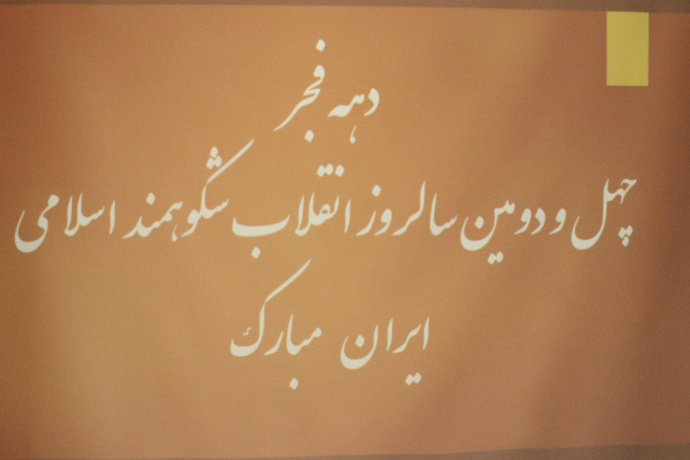 دهه فجر
چهل و دومین سالروز انقلاب شکوهمند اسلامی
ایران مبارک